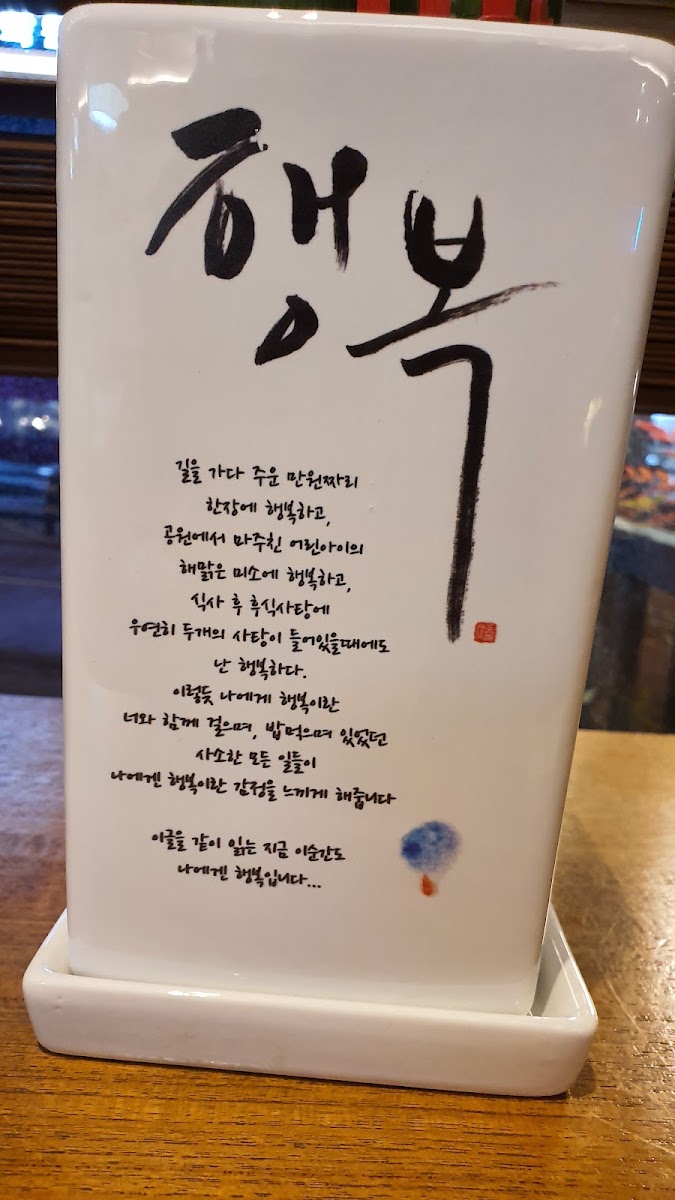 행복
길을 가다 주운 만원짜리
한장에 행복하고,
공원에서 마주친 어린아이의
해맑은 미소에 행복하고,
식사 후 후식사탕에
우연히 두개의 사탕이 들어있을때에도
난 행복하다.
이렇듯 나에게 행복이란
너와 함께 걸으며, 밥먹으며 있었던
사소한 모든 일들이
나에겐 행복이란 감정을 느끼게 해줍니다
이글을 같이 읽는 지금 이순간도
나에겐 행복입니다...